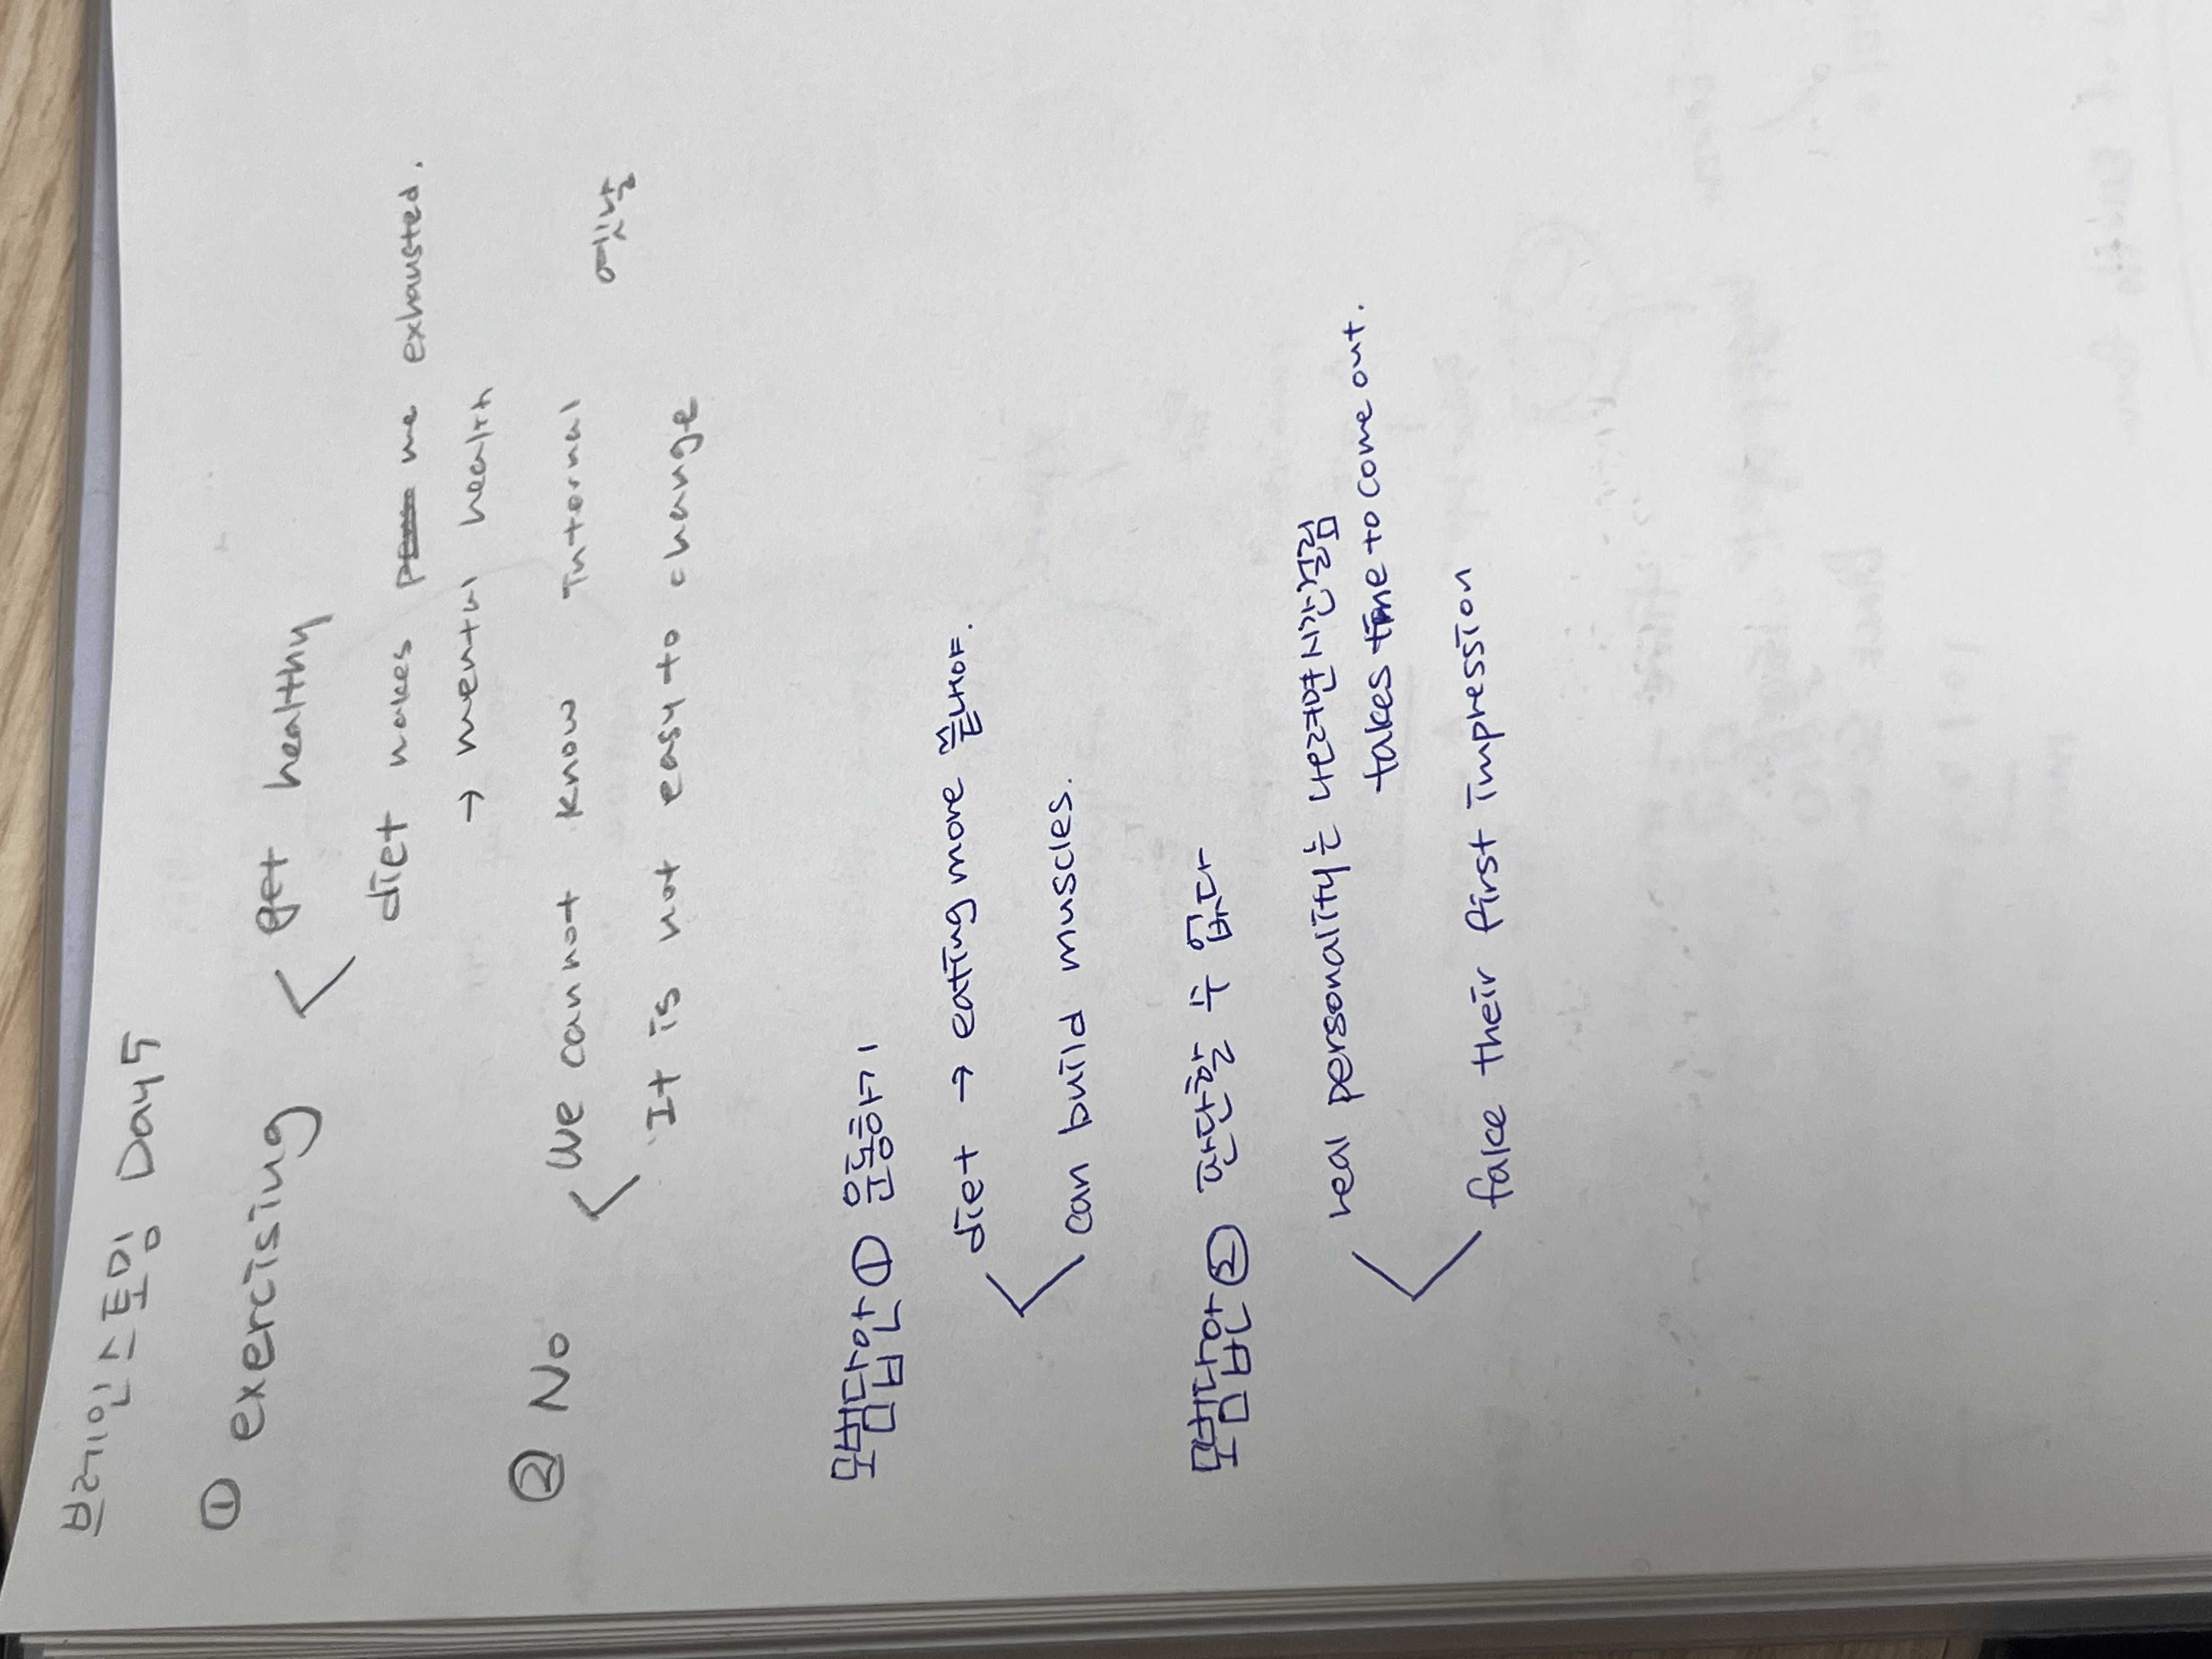 브레인스토밍 Day5
① exercising < get healthy
diet makes me exhausted.
→ mental health
② No < We cannot know internal
It is not easy to change
몸매나와구먼 ① 운동하기
diet → eating more 끝나야.
can build muscles.
② 판단할 수 없다
real personality는 나오려면 시간걸림
takes time to come out.
fake their first impression